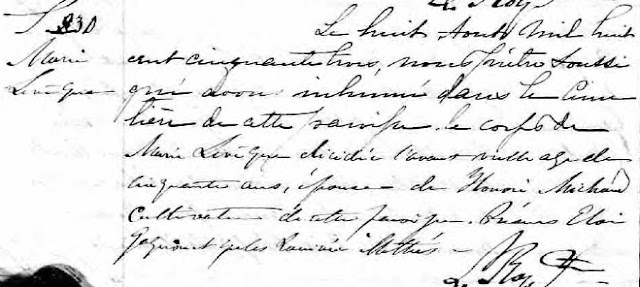 S. 230
Marie
Levêque
Le huit Aoûts Mil huit
cent cinquante trois, nous prêtre soussi
gné avons inhumé dans le Cime
tière de cette paroisse le corps de
Marie Levêque décidée l'avant veille age de
cinquante ans, épouse de Honoré Michaud
Cultivateur de cette paroisse. Présens Eloi
Gagnon et
L. Roy Ptr